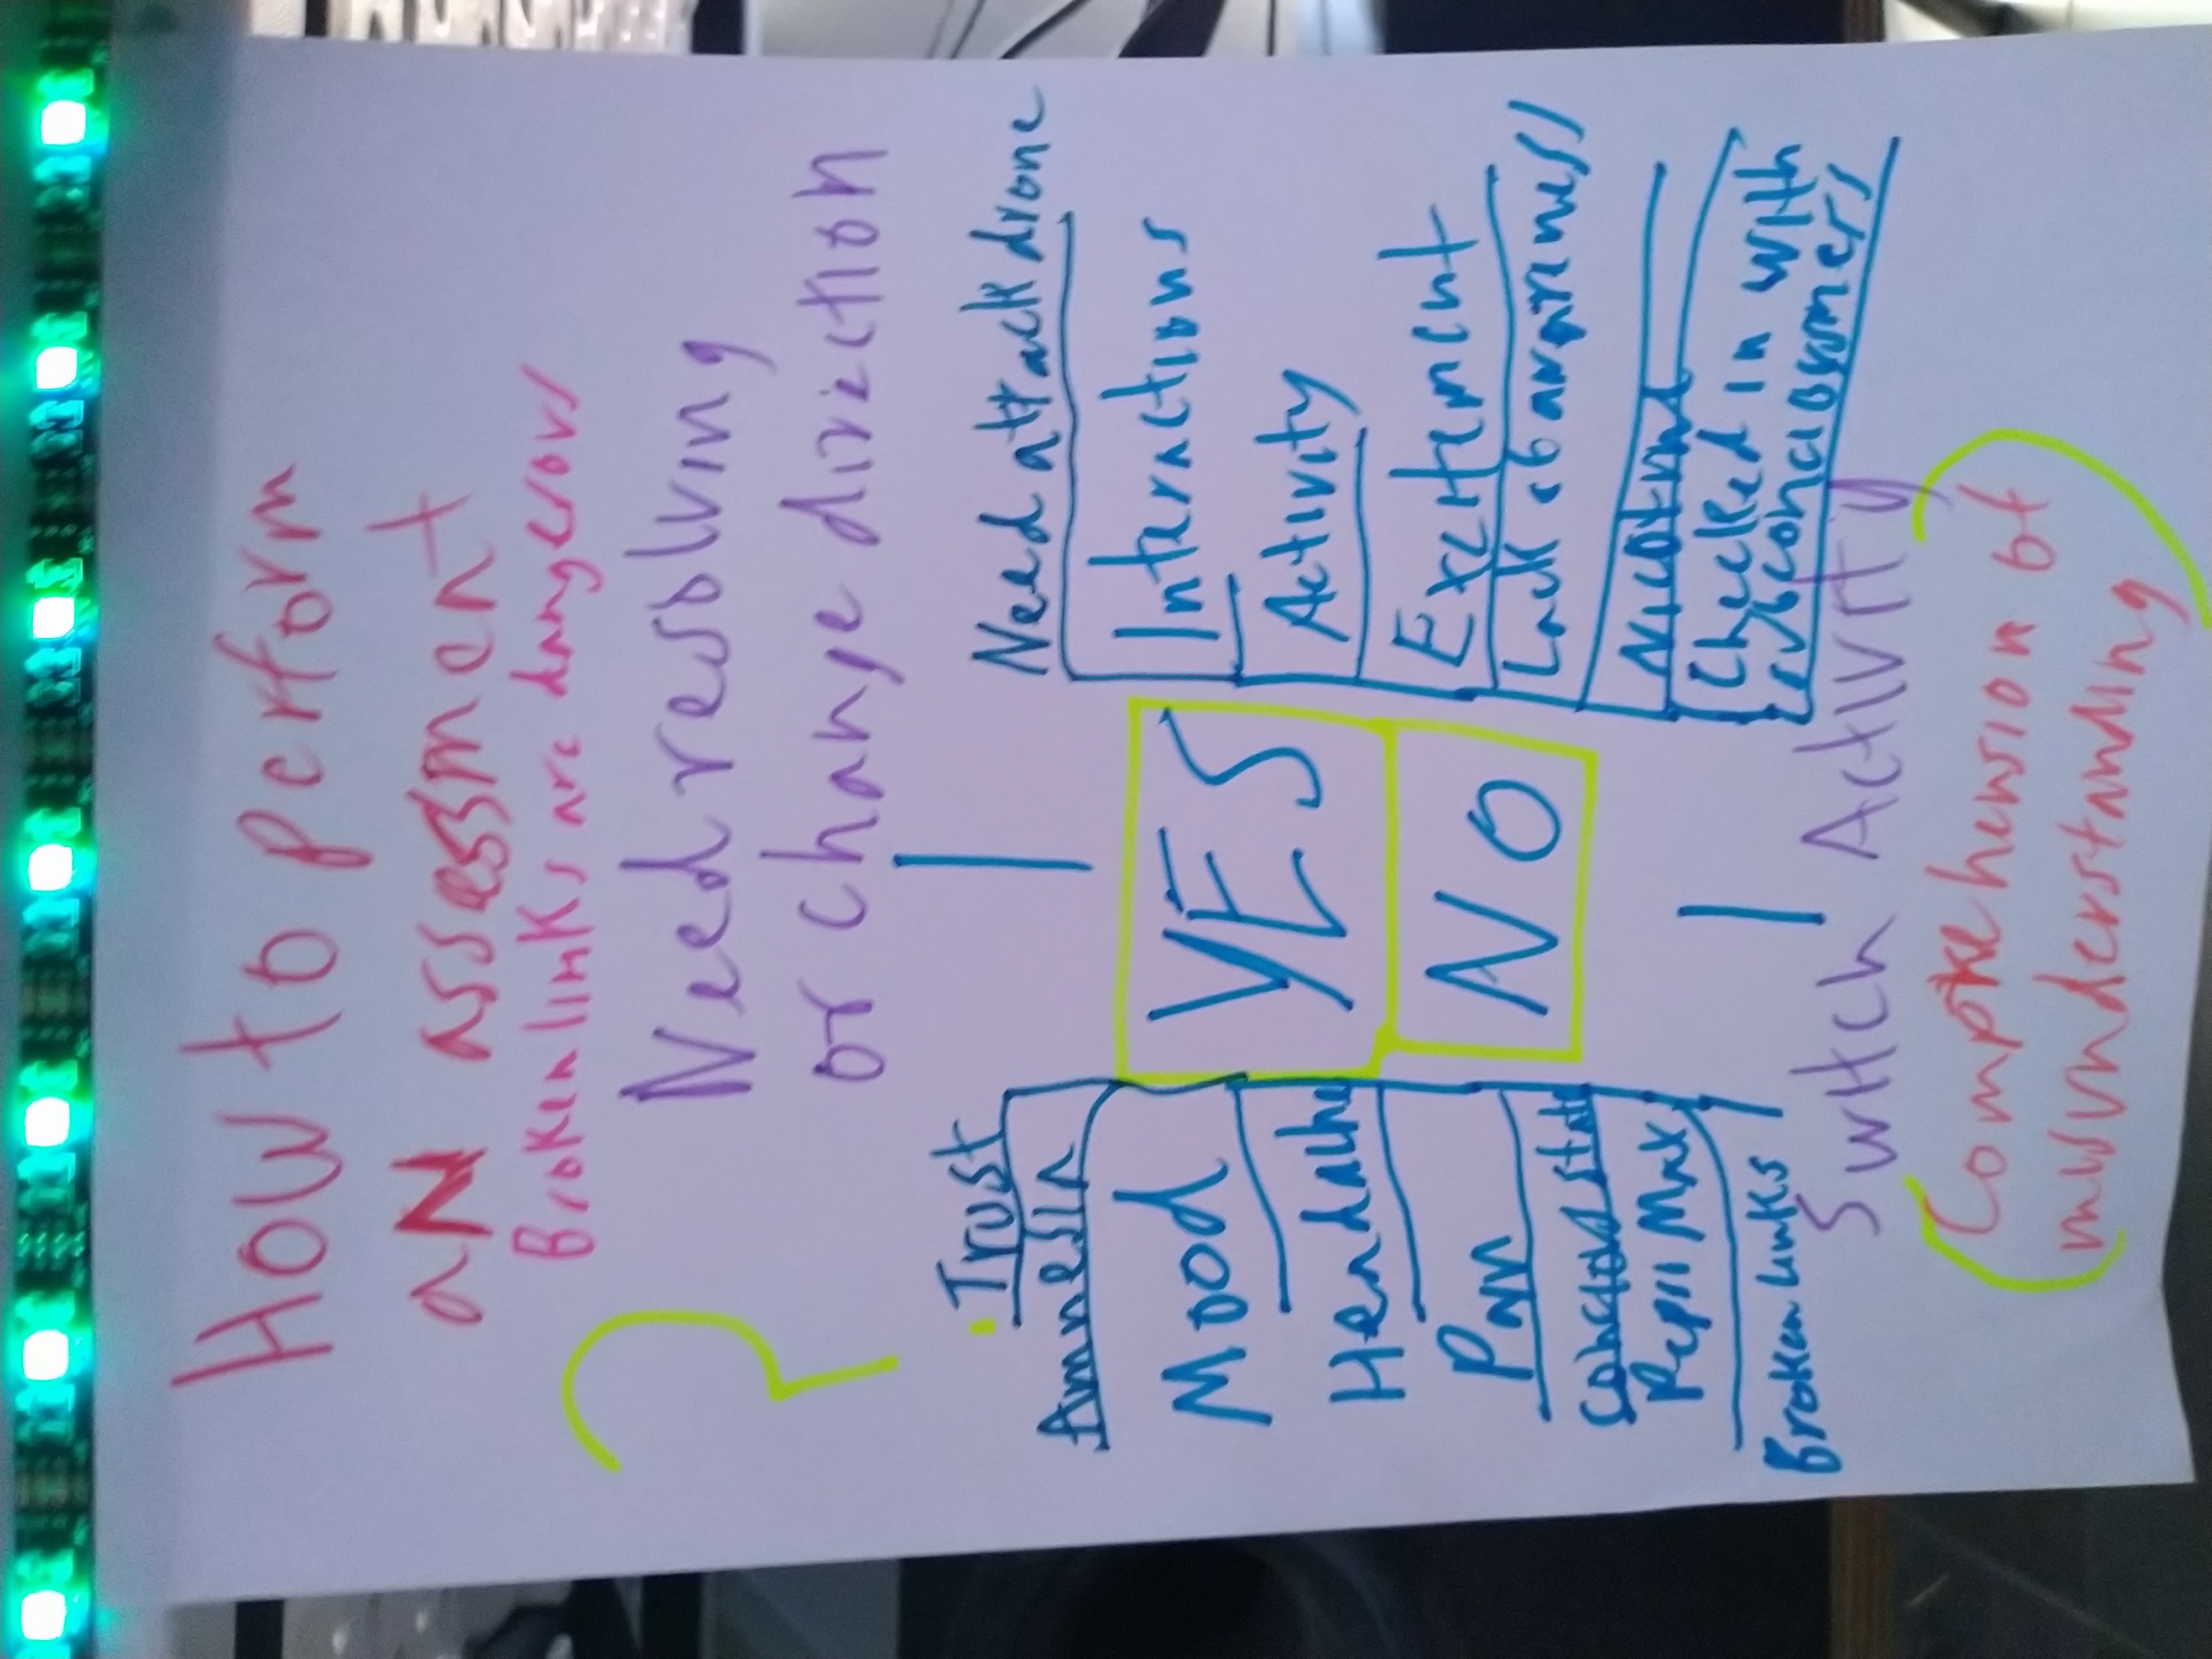 How to perform
aN assesment
Broken links are dangerous
Need resolving
or change direction
Trust
Amnesia
Mood
Headache
Pain
Pepsi Max
Broken links
YES
NO
Need attack drone
Interactions
Activity
Excitement
Lack of awareness
Nicotine
Checked in with
subconciossness
switch Activity
Comprehension of
misunderstanding